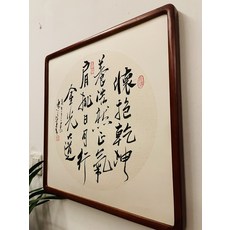 懷抱乾坤
養浩然正氣
肩挑日月行
金光大道